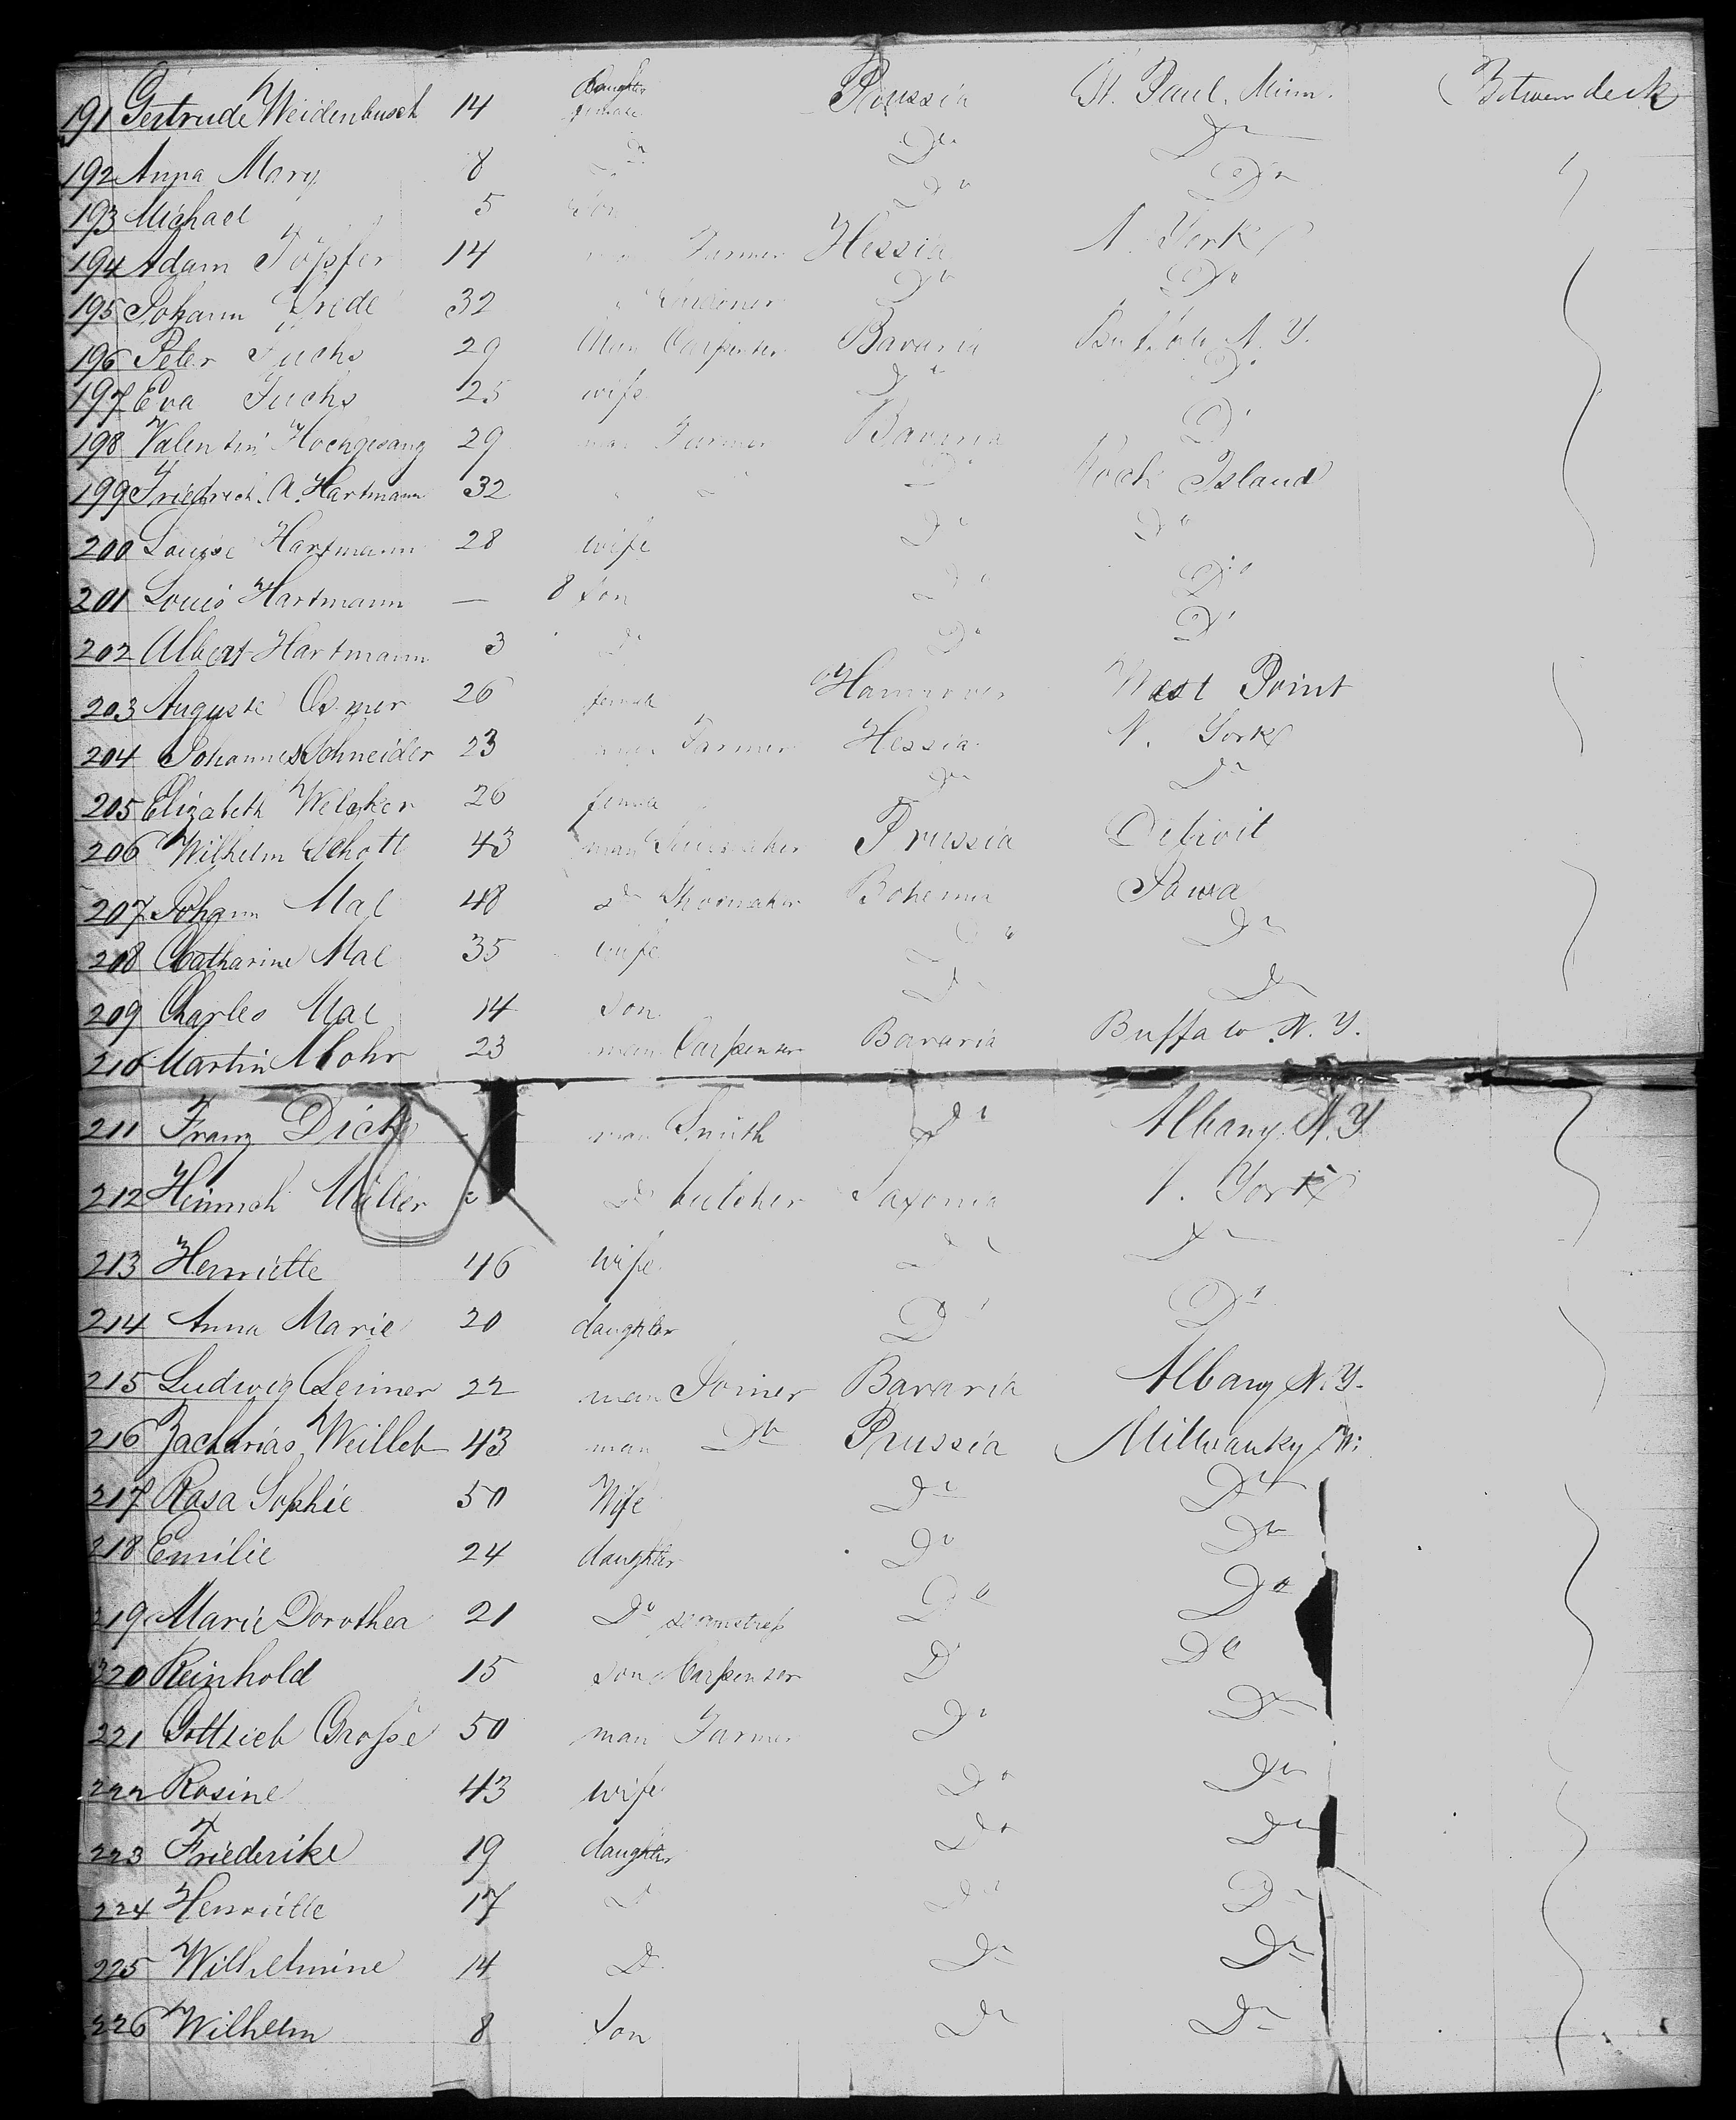 191 Gertrude Weidenbusch 14 Daughter female Prussia St. Paul, Minn. Betweendeck
192 Anna Mary 8 Do Do Do
193 Michael 5 Son Do Do
194 Adam Töpfer 14 Farmer Hessia N. York
195 Johann 32 Do Do
196 Peter Fuchs 29 Man Carpenter Bavaria Buffalo N. Y.
197 Eva Fuchs 25 wife Do Do
198 Valentin Hochgesang 29 man Farmer Bavaria Do
199 Friedrich A. Hartmann 32 " " Do Rock Island
200 Louise Hartmann 28 wife Do Do
201 Louis Hartmann — 8 Son Do Do
202 Albert Hartmann 3 Do Do Do
203 Auguste 26 female Hannover West Point
204 Johannes Schneider 23 man Farmer Hessia N. York
205 Elizabeth Welcker 26 female Do Do
206 Wilhelm Schott 43 man Prussia Detroit
207 Johann Mal 48 Do Shoemaker Bohemia Iowa
208 Catharine Mal 35 wife Do Do
209 Charles Mal 14 Son Do Do
210 Martin Mohr 23 man Carpenter Bavaria Buffalo N. Y.
211 Franz Dick man Smith Do Albany N. Y
212 Heinrich Müller Do butcher Saxonia N. York
213 Henriette 46 wife Do Do
214 Anna Marie 20 daughter Do Do
215 Ludwig Leimer 22 man Joiner Bavaria Albany N. Y.
216 Zacharias 43 man Do Prussia Milwauky Wi:
217 Rosa Sophie 50 Wife Do Do
218 Emilie 24 daughter Do Do
219 Marie Dorothea 21 Do seamstress Do Do
220 Reinhold 15 son Carpenter Do Do
221 Gottlieb Grosse 50 man Farmer Do Do
222 Rosine 43 wife Do Do
223 Friederike 19 daughter Do Do
224 Henriette 17 Do Do Do
225 Wilhelmine 14 Do Do Do
226 Wilhelm 8 Son Do Do